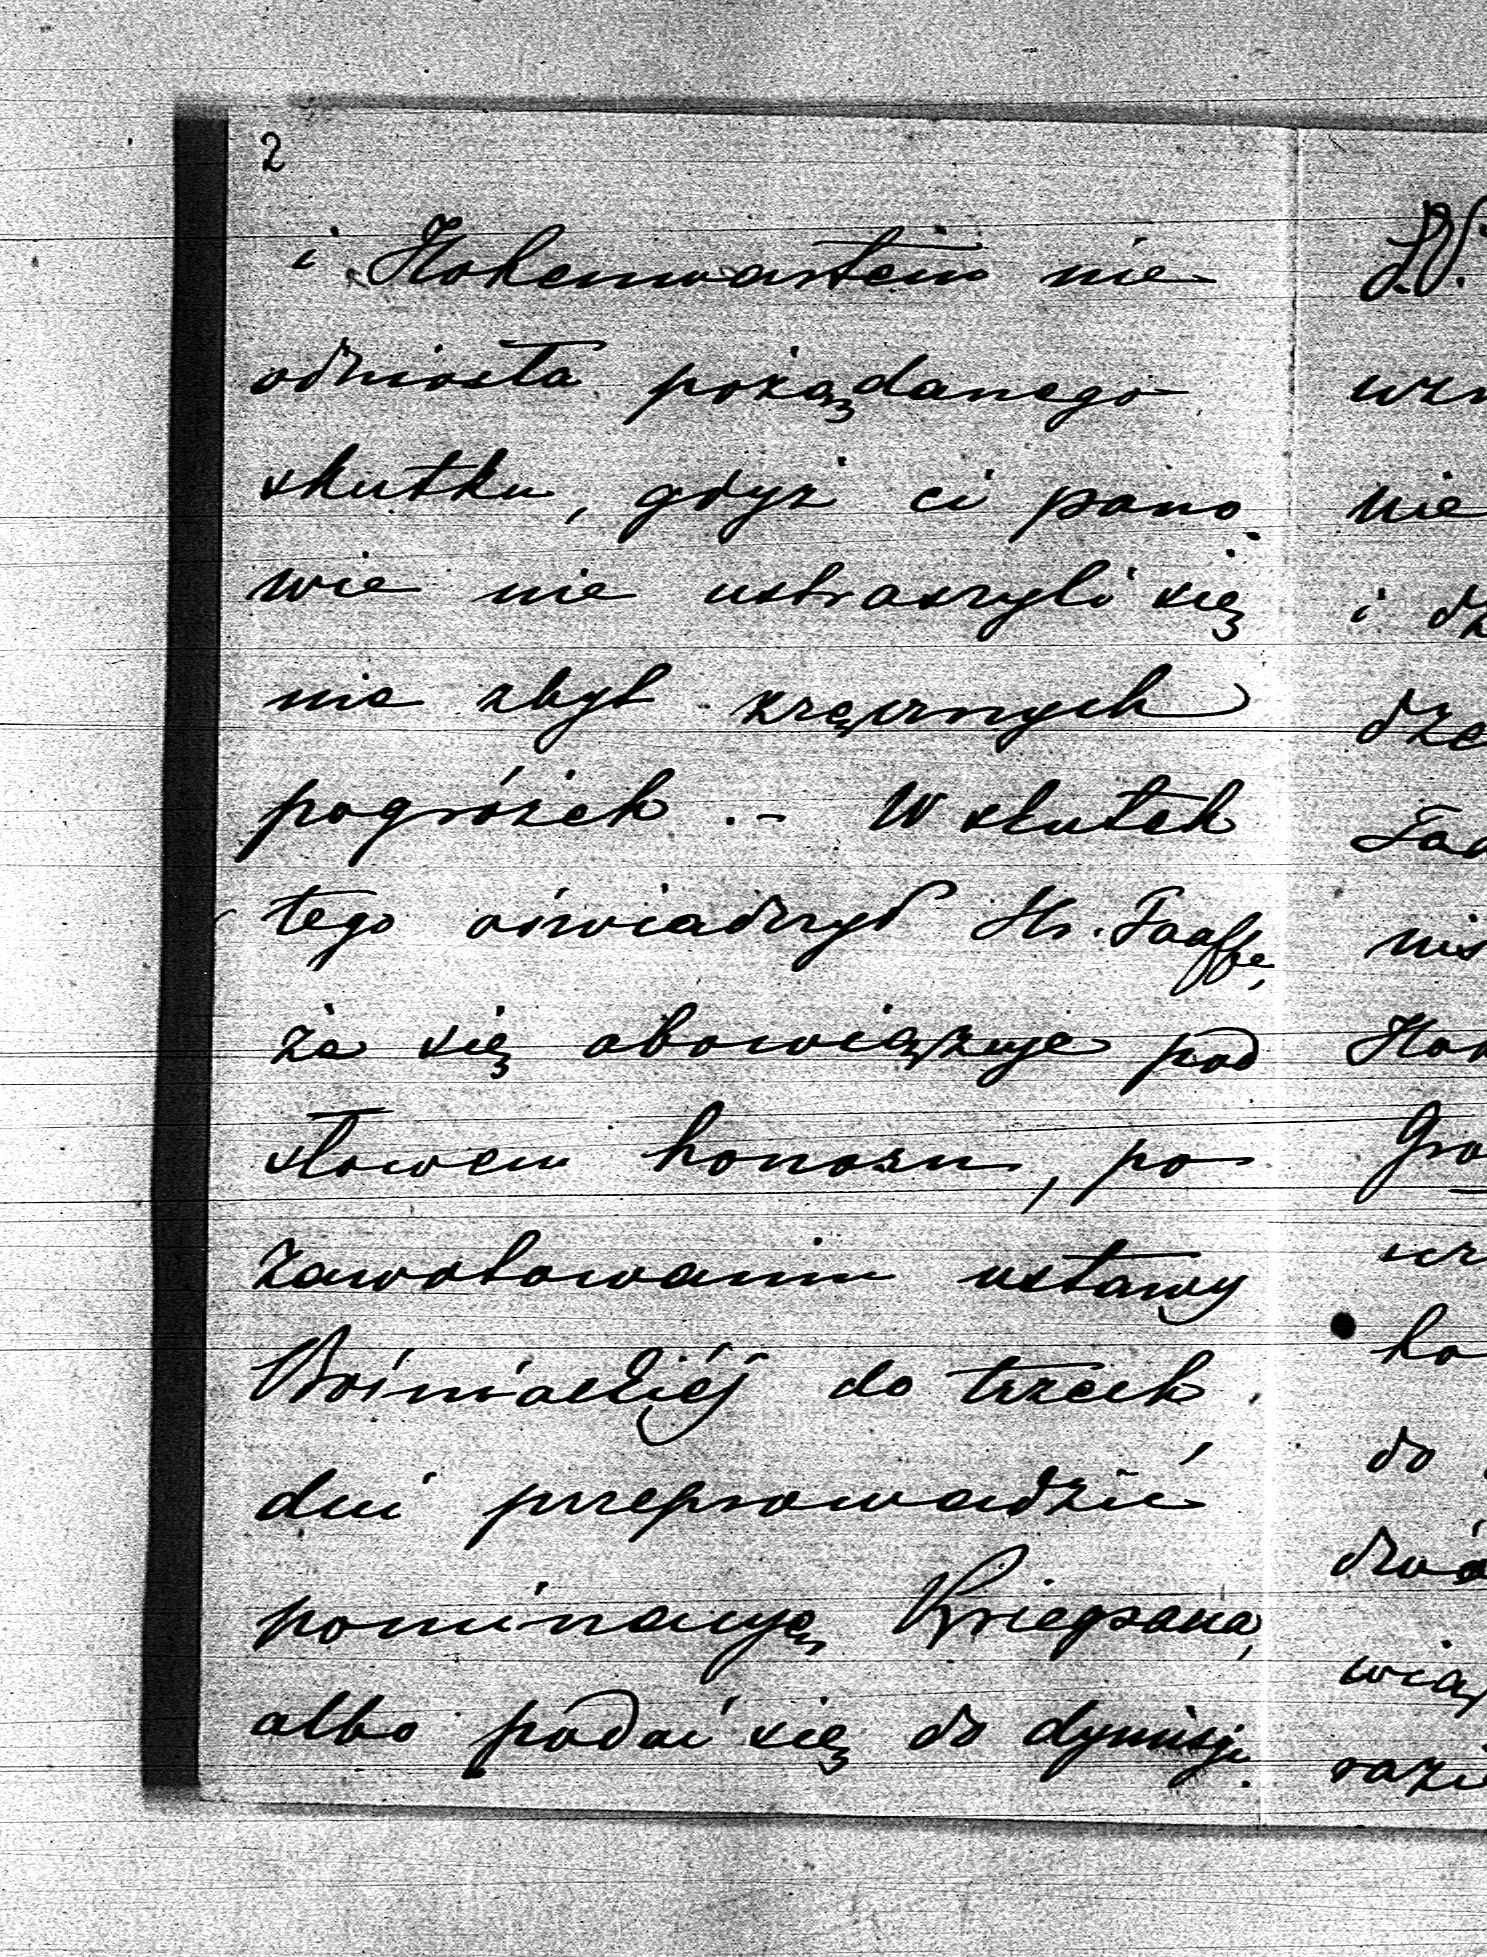 2
i Hohenwartem nie
odniosła pożądanego
skutku, gdyż ci pano-
wie nie ustraszyli się
nie zbyt zręcznych
pogróżek. – W skutek
tego oświadczył Hr. Taaffe,
że się obowiązuje pod
słowem honoru, po
zawotowaniu ustawy
Bośniackiéj do trzech
dni przeprowadzić
nominacyę Kriegsaua,
albo podać się do dymisji.
L.V.
wzn
nie
i dz
dze
Taa
nis
Hoh
Gro
ho
do
wią
razi